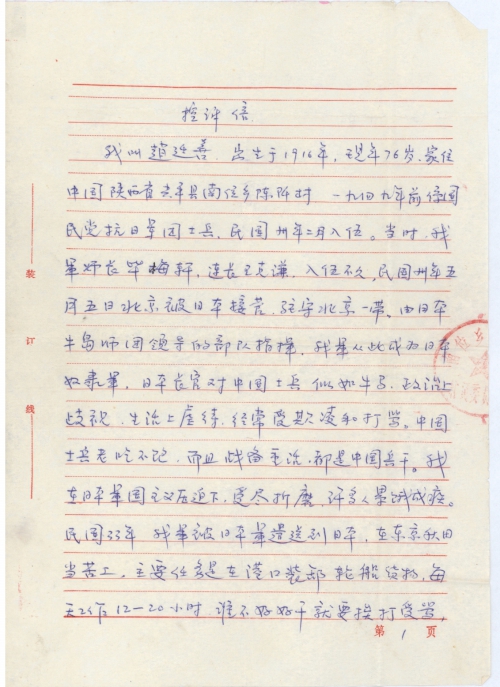 控诉信
我叫赵廷善，出生于1916年，现年76岁，家住
中国陕西省 县南位乡陈阡村 一九四九年前系国
民党抗日军团士兵，民国卅年二月入伍。当时，我
军师长毕梅轩，连长王克谦，入伍不久，民国卅年五
月五日北京被日本接管，驻守北京一带。由日本
牛岛师团领导的部队指挥，我军从此成为日本
奴隶军，日本长官对中国士兵似如牛马，政治上
歧视，生活上虐待，经常受欺凌和打骂。中国
士兵老吃不饱，而且战备重活，都是中国兵干。我
在日本军国主义压迫下，受尽折磨，许多人累饿成疾。
民国33年 我军被日本军遣送到日本，在东京秋田
当苦工，主要任务是在港口装卸轮船货物，每
天工作12—20小时，谁不好好干就要挨打受骂，
装
订
线
第 1 页